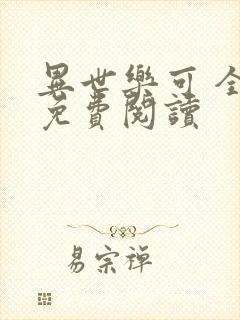 異世樂可 全
免費閱讀
易宗禪